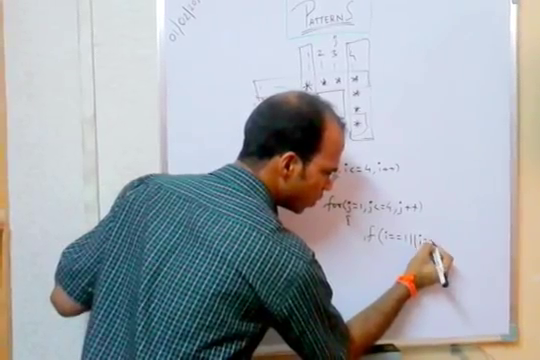 01/02/20
PATTERNS
j
1 2 3 4
* * * *
*
*
*
, i<=4, i++)
for(j=1, j<=4, j++)
{
if (i==1||i=